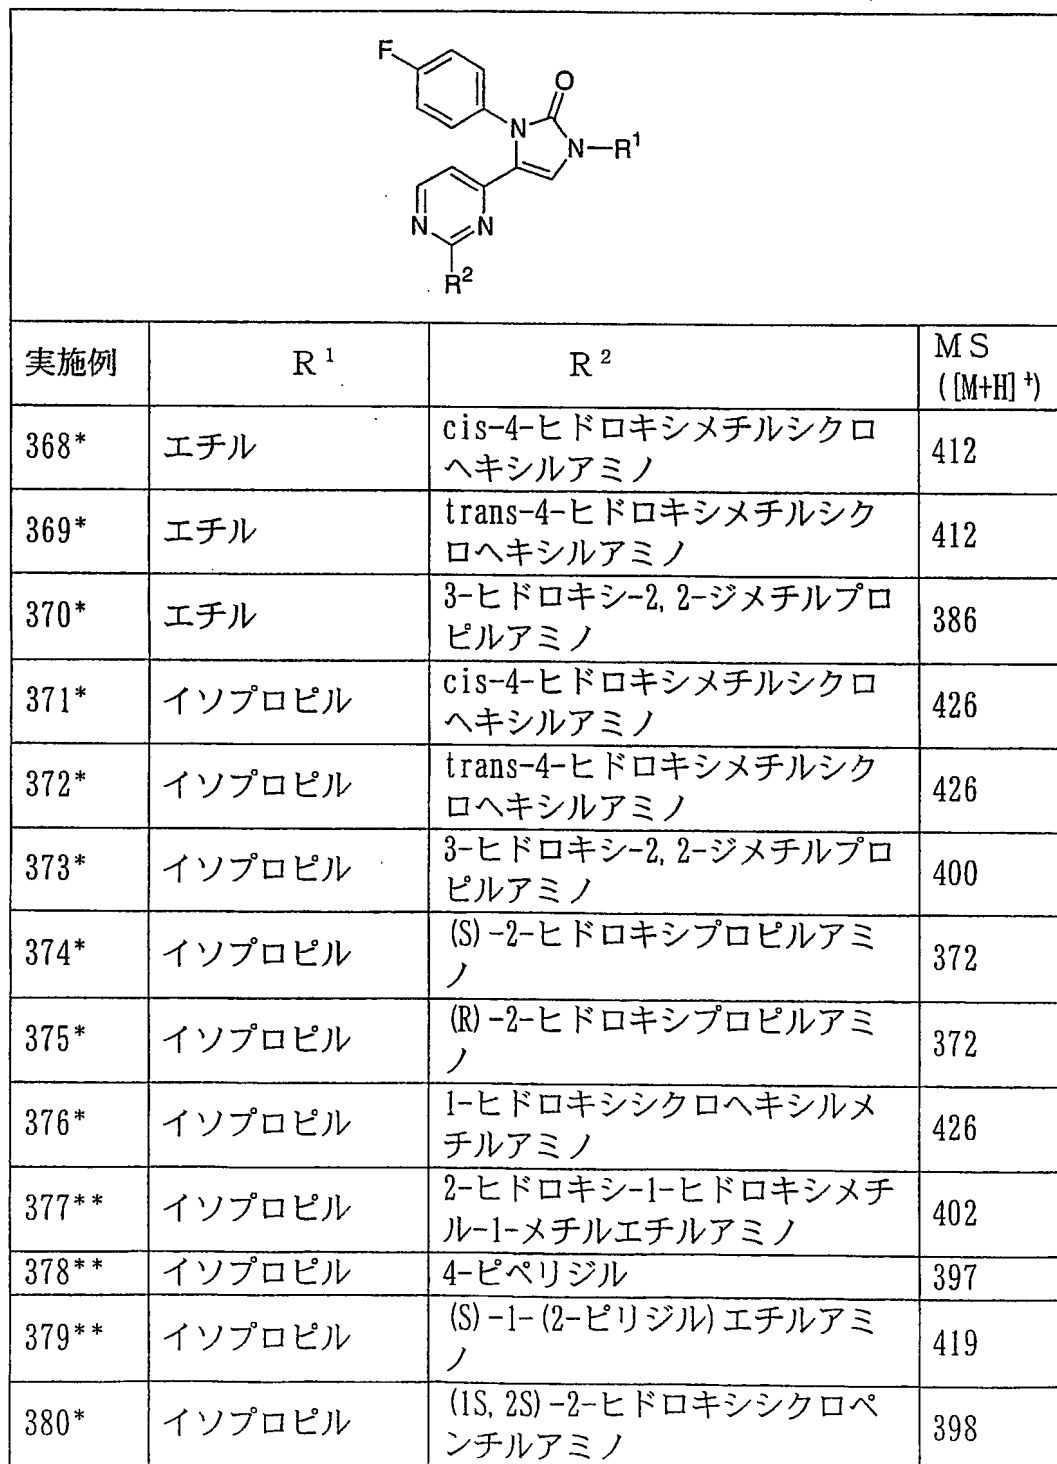 F
O
N
N-R¹
N
N
R²
実施例 R¹ R² MS
([M+H]⁺)
368* エチル cis-4-ヒドロキシメチルシクロ
ヘキシルアミノ 412
369* エチル trans-4-ヒドロキシメチルシク
ロヘキシルアミノ 412
370* エチル 3-ヒドロキシ-2,2-ジメチルプロ
ピルアミノ 386
371* イソプロピル cis-4-ヒドロキシメチルシクロ
ヘキシルアミノ 426
372* イソプロピル trans-4-ヒドロキシメチルシク
ロヘキシルアミノ 426
373* イソプロピル 3-ヒドロキシ-2,2-ジメチルプロ
ピルアミノ 400
374* イソプロピル (S)-2-ヒドロキシプロピルアミ
ノ 372
375* イソプロピル (R)-2-ヒドロキシプロピルアミ
ノ 372
376* イソプロピル 1-ヒドロキシシクロヘキシルメ
チルアミノ 426
377** イソプロピル 2-ヒドロキシ-1-ヒドロキシメチ
ル-1-メチルエチルアミノ 402
378** イソプロピル 4-ピペリジル 397
379** イソプロピル (S)-1-(2-ピリジル)エチルアミ
ノ 419
380* イソプロピル (1S,2S)-2-ヒドロキシシクロペ
ンチルアミノ 398